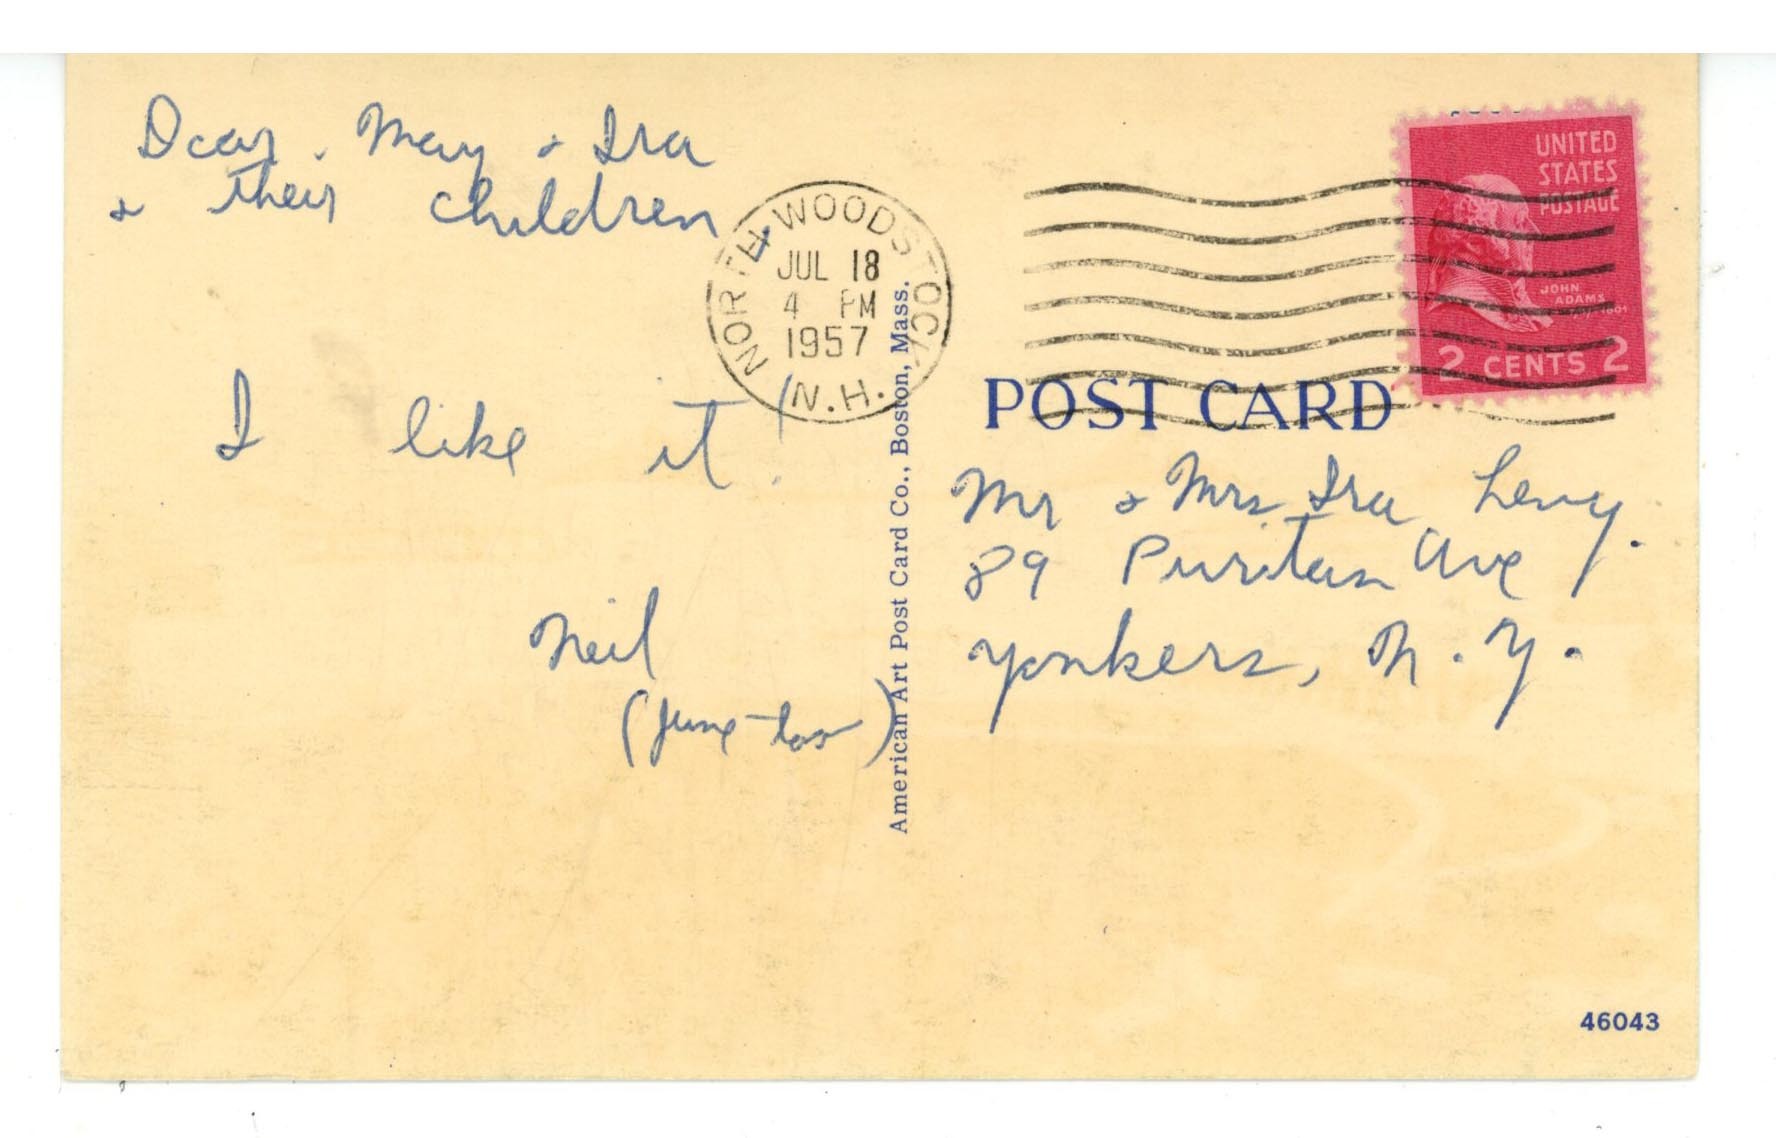 Dear May & Ira
& their children,
I like it!
Neil
(June-too)
NORTH WOODSTOCK
JUL 18
4 PM
1957
N.H.
American Art Post Card Co., Boston, Mass.
UNITED
STATES
POSTAGE
JOHN
ADAMS
2 CENTS 2
POST CARD
Mr & Mrs Ira Levy.
89 Puritan Ave
Yonkers, N.Y.
46043